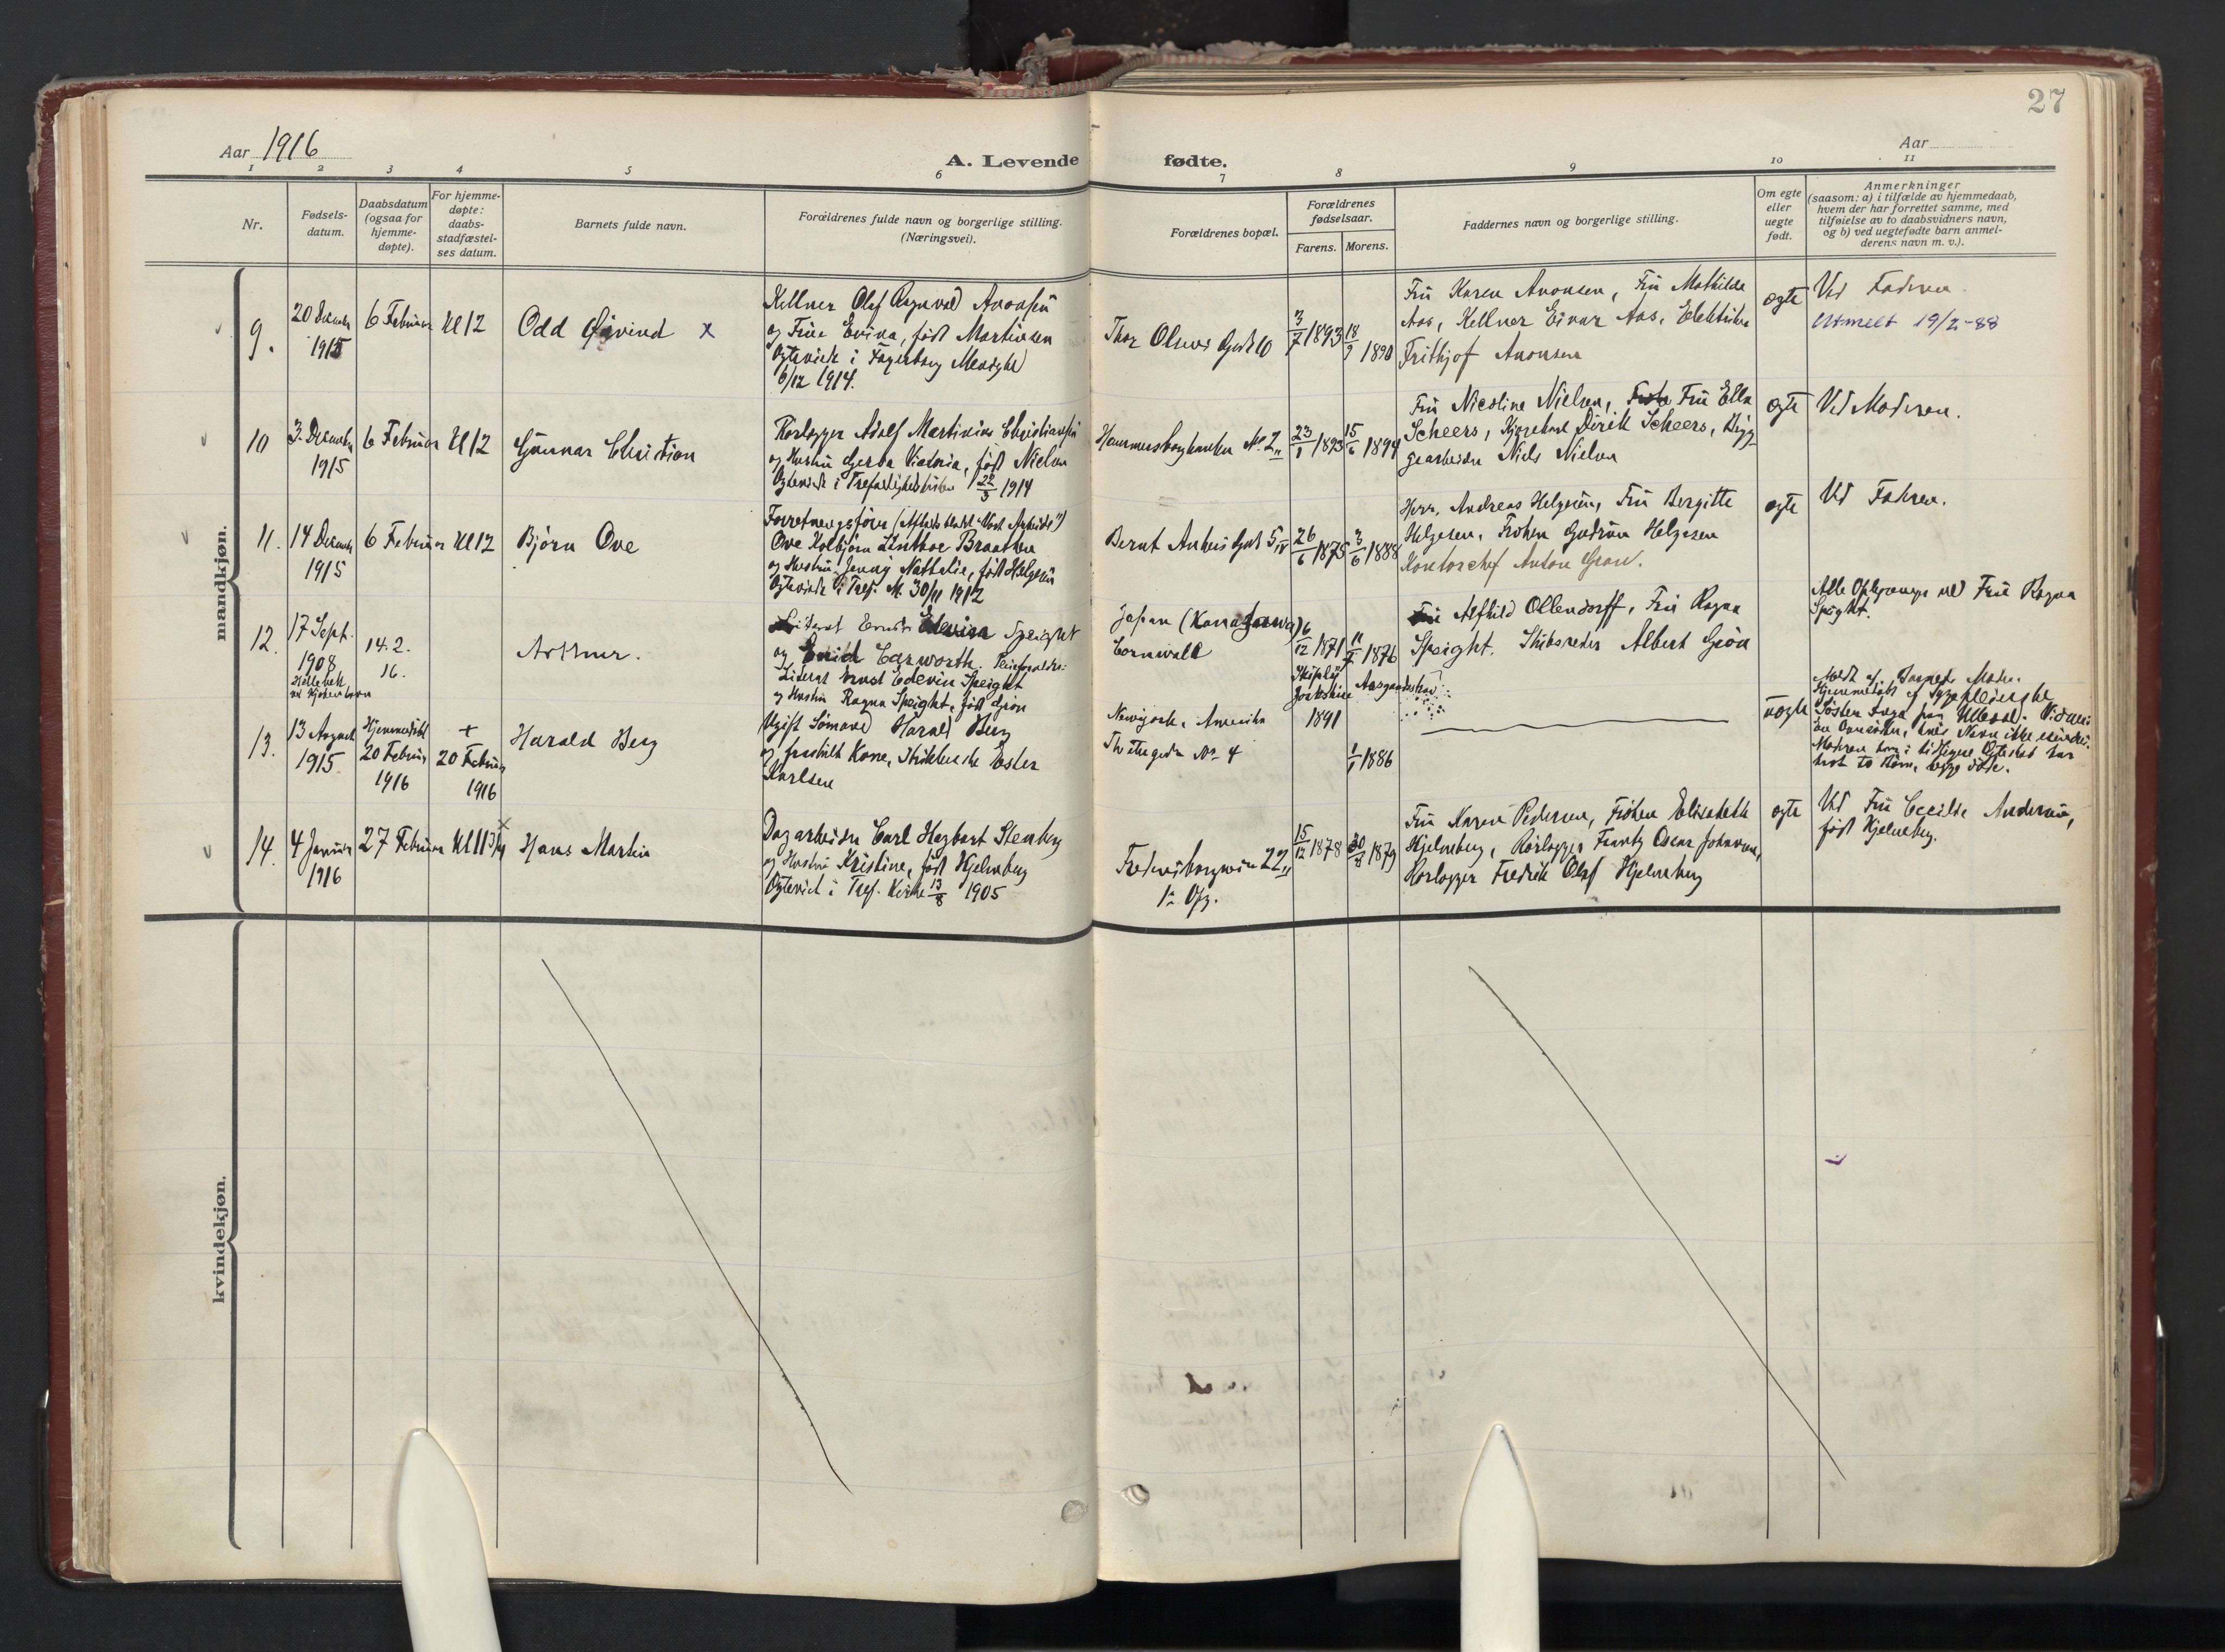 27
Aar 1916
A. Levende fødte.
Aar
1 2 3 4 5 6 7 8 9 10 11
Nr.
Fødsels-
datum.
Daabsdatum
(ogsaa for
hjemme-
døpte).
For hjemme-
døpte:
daabs-
stadfæstel-
ses datum.
Barnets fulde navn.
Forældrenes fulde navn og borgerlige stilling.
(Næringsvei).
Forældrenes bopæl.
Forældrenes
fødselsaar.
Farens. Morens.
Faddernes navn og borgerlige stilling.
Om egte
eller
uegte
født.
Anmerkninger
(saasom: a) i tilfælde av hjemmedaab,
hvem der har forrettet samme, med
tilføielse av to daabsvidners navn,
og b) ved uegtefødte barn anmel-
derens navn m. v.).
mandkjøn.
9.
20 Decemb
1915
6 Februar Kl 12
Odd Øivind x
Kellner Olaf Ragnvald Aronsen
og Frue Evina, født Martinsen
Egteviet i Fagerborg Menighed
6/12 1914.
Thor Olsens Gade 10
3/7 1893
18/9 1890
Fru Karen Aronsen, Fru Mathilde
Aas, Kellner Einar Aas, Elektriker
Frithjof Aronsen
egte
Ved Faderen
Utmeldt 19/2-88
10
3. Decemb
1915
6 Februar Kl 12
Gunnar Christian
Rørlægger Adolf Martinius Christiansen
og Hustru Gerda Victoria, født Nielsen
Egteviet i Trefoldighedskirken 22/3 1914
Hammersborgbakken No. 2
23/1 1893
15/6 1894
Fru Nicoline Nielsen, Fru Ella
Scheers, Kjørekarl Dirik Scheers, Brygg-
gearbeider Niels Nielsen
egte
Ved Moderen.
11.
14 Decemb
1915
6 Februar Kl 12
Bjørn Ove
Forretningsfører (Afholdsbladet "Vort Arbeide")
Ove Kolbjørn Anthor Braathen
og Hustru Jenny Nathalie, født Helgesen
Egteviet i Tref. M. 30/11 1912
Bernt Ankers Gade 5 IV
26/6 1875
3/6 1888
Herr. Andreas Helgesen, Fru Bergitte
Helgesen, Frøken Gudrun Helgesen
Kontorchef Anton Grau.
egte
Ved Faderen.
12.
17 Sept.
1908
Hellebek
ved Kjøbenhavn
14.2.
16.
Arthur.
Literat Ernst Edwin Speight
og Enid Carworth. Pleieforældre:
Literat Ernst Edevin Speight
og Hustru Ragna Speight, født Grøn
Japan (Kanazawa)
Cornwall
6/12 1871
11/7 1876
Skiply
Yorkshire Aasgaardstrand
Alfhild Ollendorff, Fru Ragna
Speight. Skibsreder Albert Grøn
Alle Oplysninger ved Fru Ragna
Speight.
13.
13 August
1915
Hjemmedøbt
20 Februar
1916
+
20 Februar
1916
Harald Berg
Ugift Sømand Harald Berg
og fraskilt Kone, Strikkerske Ester
Karlsen
Newyork, Amerika
Thvetegade No. 4
1891
1/1 1886
uegte
Meldt af Barnets Moder.
Hjemmedøbt af Sygepleierske
Søster Inga fra Ullevaal. Vidner:
en Oversøster, hvis Navn ikke erindres.
Moderen som i tidligere Egteskab har
hat to Børn, begge døde.
14.
4 Januar
1916
27 Februar Kl 11 3/4
x
Hans Martin
Dagarbeider Carl Hagbart Stenberg
og Hustru Kristine, født Hjelmeberg
Egteviet i Tref. Kirke 13/8 1905
Fredensborgveien 22 II
1ste Opg.
15/12 1878
30/8 1879
Fru Karen Pedersen, Frøken Elisabeth
Hjelmeberg, Rørlægger Frantz Oscar Johansen,
Rørlægger Fredrik Olaf Hjelmeberg
egte
Ved Fru Cecilie Andersen,
født Hjelmeberg.
kvindekjøn.